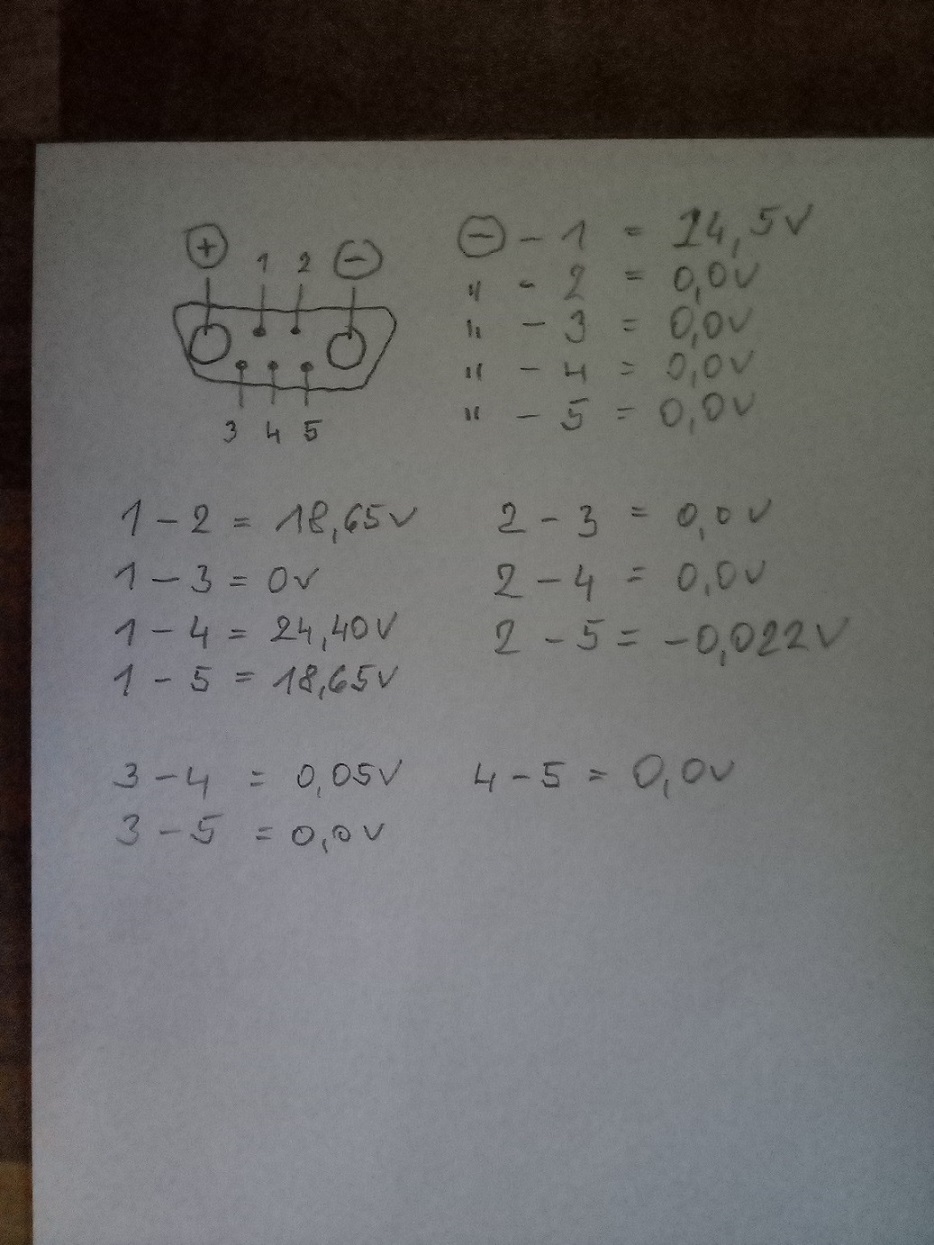 + 1 2 -
3 4 5
⊖ - 1 = 24,5V
" - 2 = 0,0V
" - 3 = 0,0V
" - 4 = 0,0V
" - 5 = 0,0V
1 - 2 = 18,65V
1 - 3 = 0V
1 - 4 = 24,40V
1 - 5 = 18,65V
2 - 3 = 0,0V
2 - 4 = 0,0V
2 - 5 = -0,022V
3 - 4 = 0,05V
3 - 5 = 0,0V
4 - 5 = 0,0V